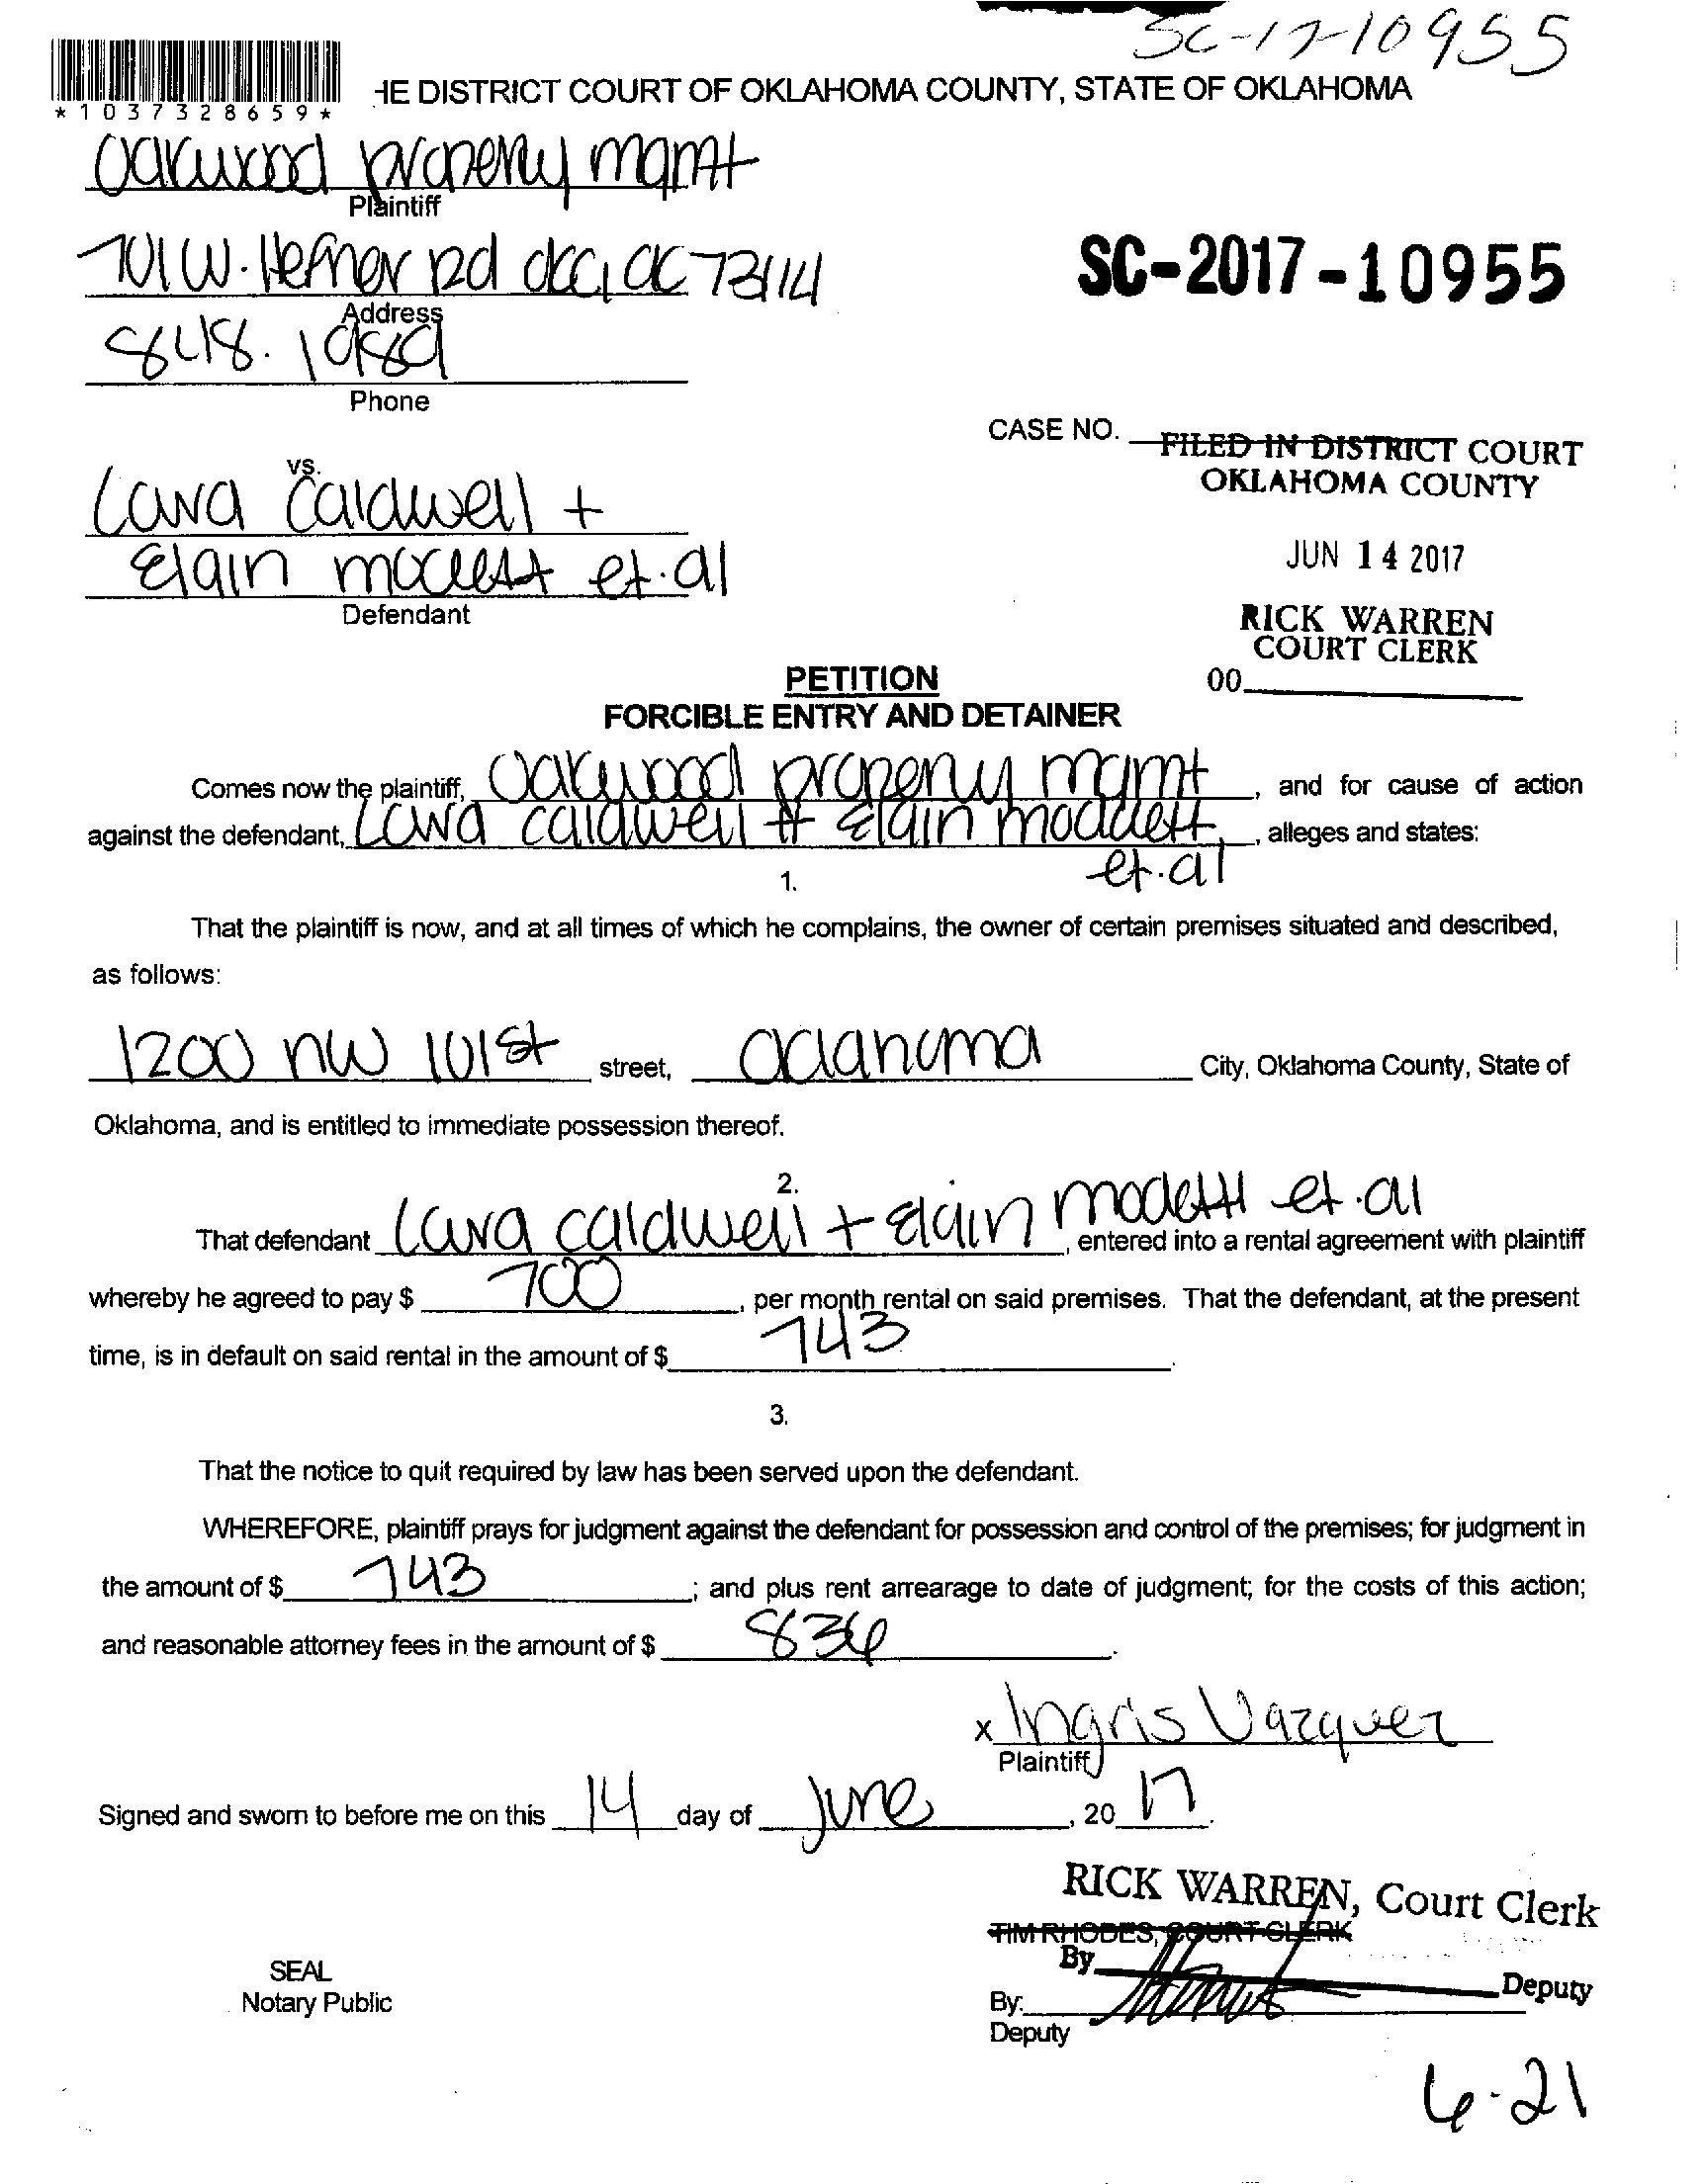 SC-17-10955
*1037328659*
HE DISTRICT COURT OF OKLAHOMA COUNTY, STATE OF OKLAHOMA
Oakwood property mgmt
Plaintiff
701 W. Hefner Rd okc, ok 73114
Address
SC-2017-10955
848.1089
Phone
CASE NO.
FILED IN DISTRICT COURT
OKLAHOMA COUNTY
vs.
Caldwell +
Elain et.al
Defendant
JUN 14 2017
RICK WARREN
COURT CLERK
00
PETITION
FORCIBLE ENTRY AND DETAINER
Comes now the plaintiff, Oakwood property mgmt, and for cause of action
against the defendant, caldwell + Elain moddett, alleges and states:
et.al
1.
That the plaintiff is now, and at all times of which he complains, the owner of certain premises situated and described,
as follows:
1200 nw 101st street, City, Oklahoma County, State of
Oklahoma, and is entitled to immediate possession thereof.
2.
That defendant caldwell + Elain et.al, entered into a rental agreement with plaintiff
whereby he agreed to pay $ 700, per month rental on said premises. That the defendant, at the present
time, is in default on said rental in the amount of $ 743.
3.
That the notice to quit required by law has been served upon the defendant.
WHEREFORE, plaintiff prays for judgment against the defendant for possession and control of the premises; for judgment in
the amount of $ 743; and plus rent arrearage to date of judgment; for the costs of this action;
and reasonable attorney fees in the amount of $ 836.
x Ingris Vazquez
Plaintiff
Signed and sworn to before me on this 14 day of June, 20 17.
RICK WARREN, Court Clerk
TIM RHODES, COURT CLERK
By Deputy
SEAL
Notary Public
By:
Deputy
6-21